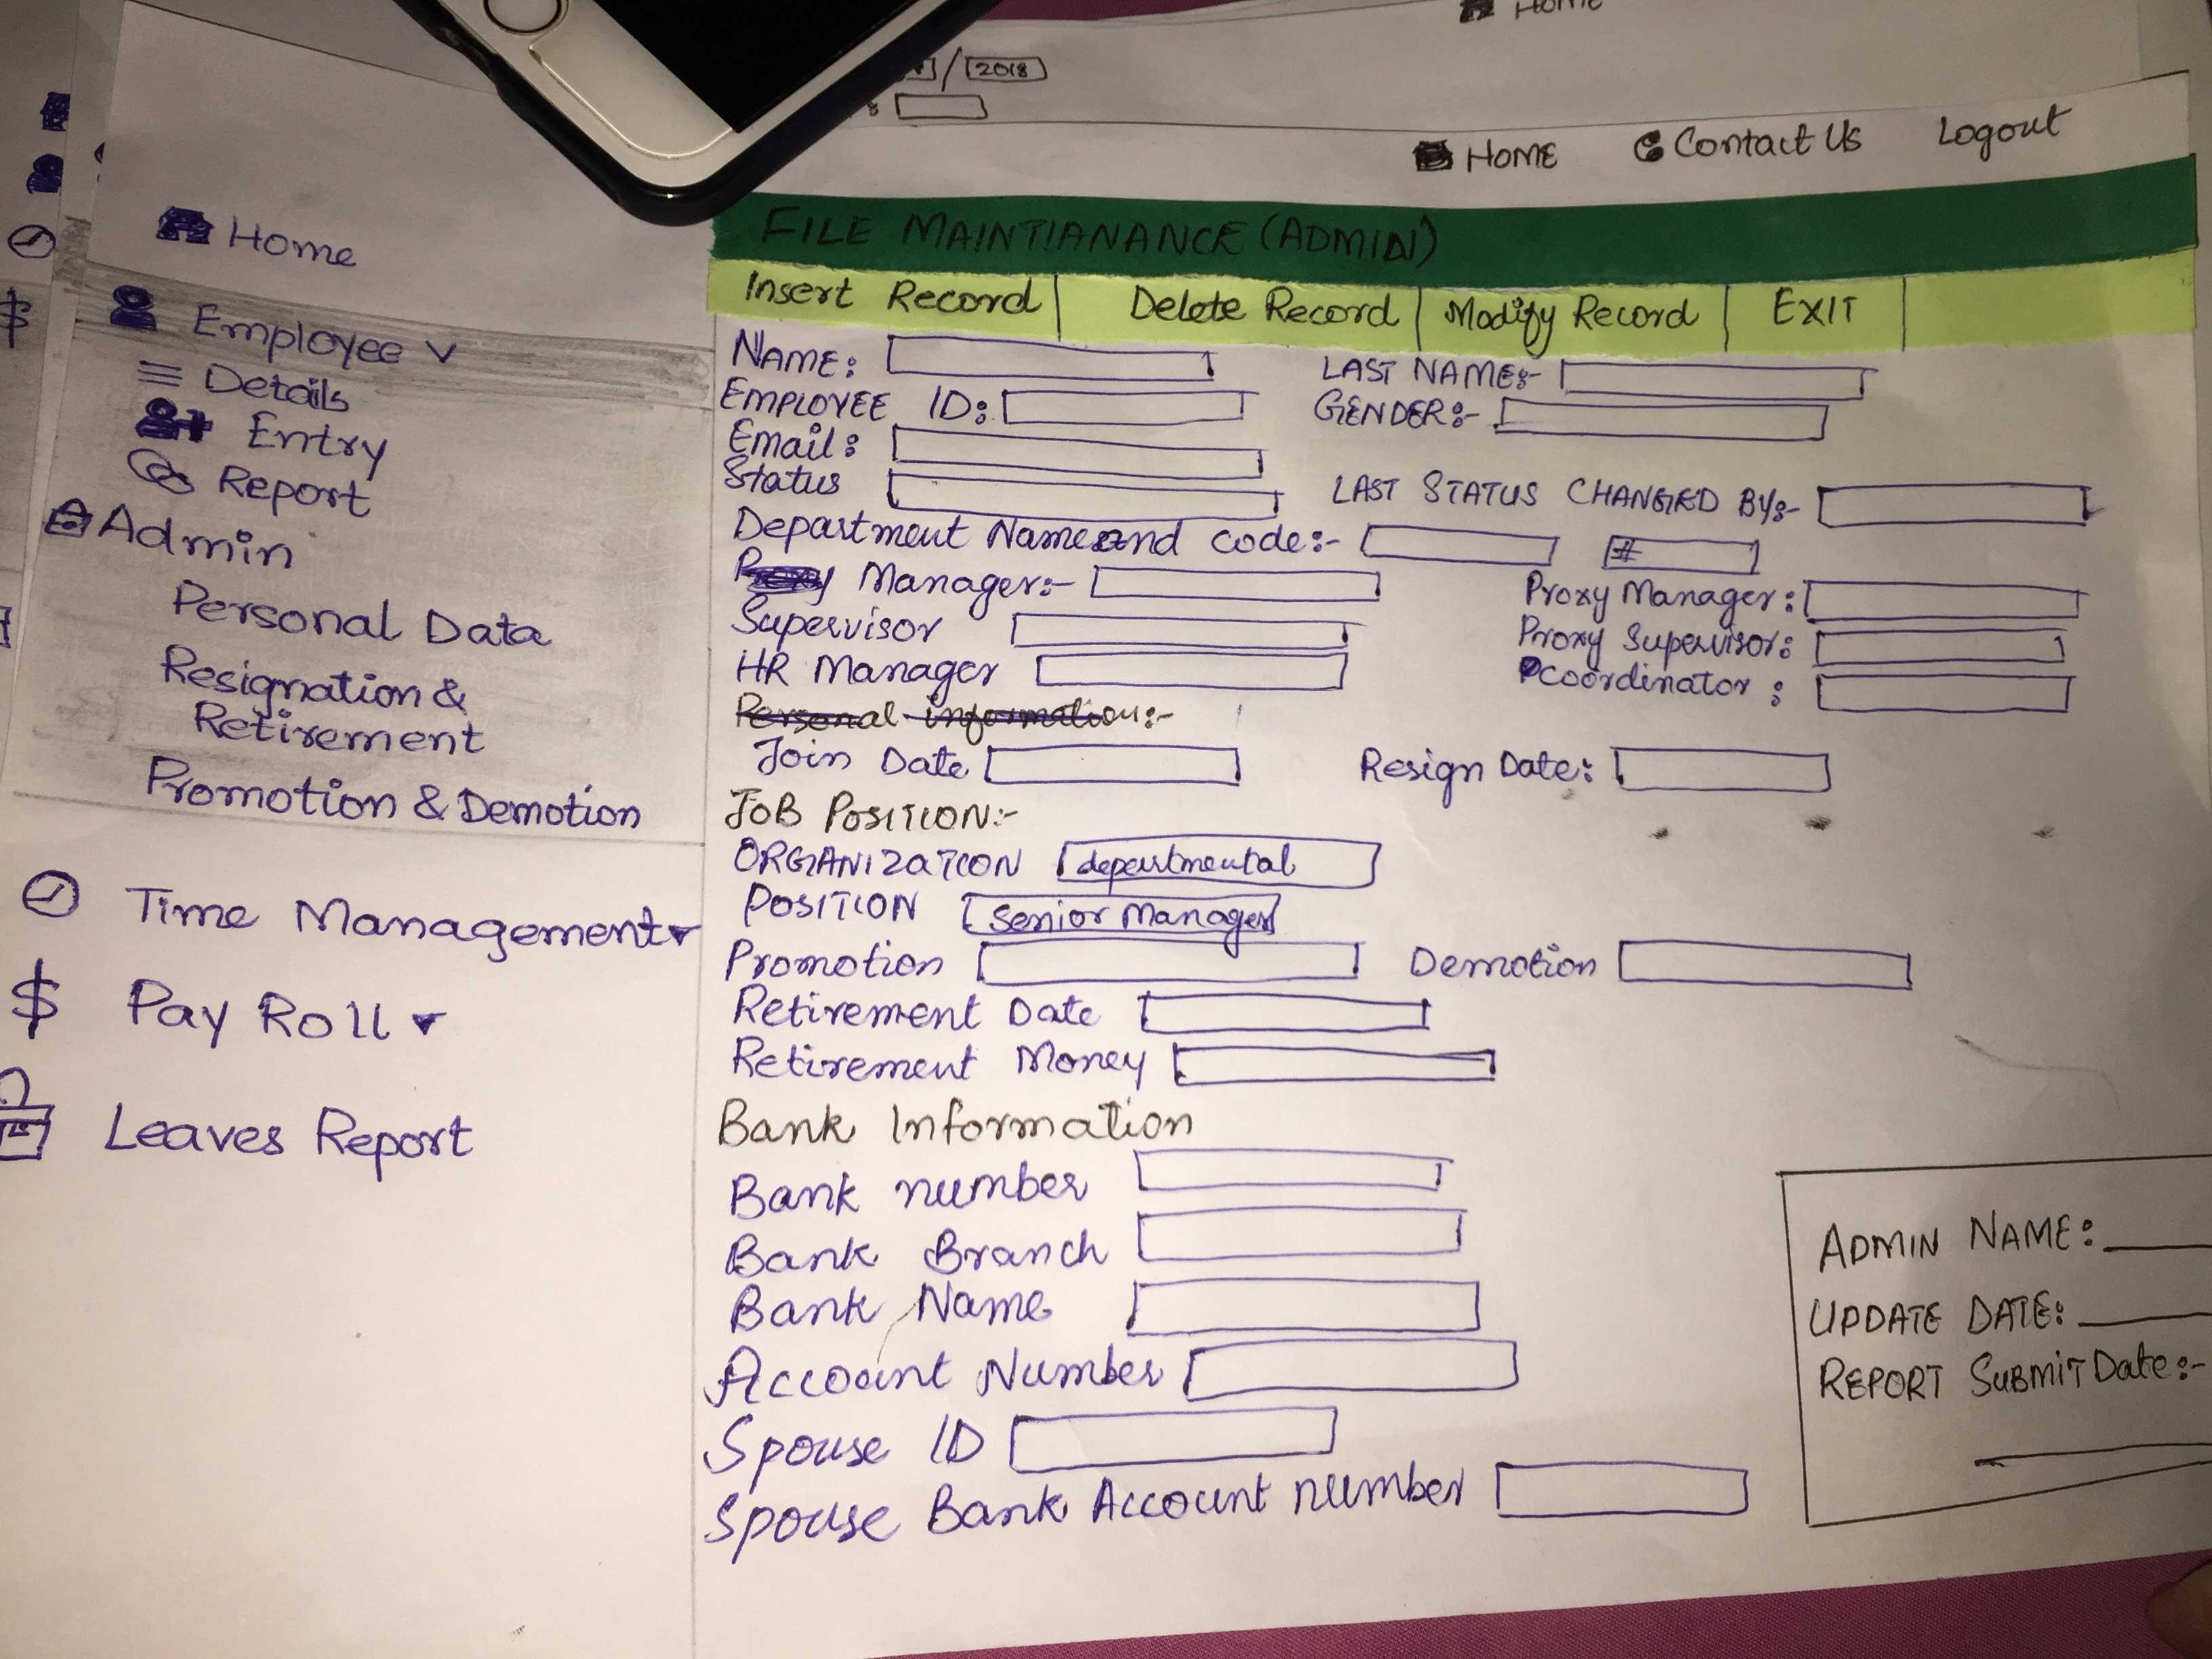 /2018
HOME Contact Us Logout
Home
Employee
Details
Entry
Report
Admin
Personal Data
Resignation &
Retirement
Promotion & Demotion
Time Management
$ Pay Roll
Leaves Report
FILE MAINTIANANCE (ADMIN)
Insert Record | Delete Record | Modify Record | EXIT
NAME: LAST NAME:-
EMPLOYEE ID: GENDER:-
Email:
Status LAST STATUS CHANGED BY:-
Department Name and code:- #
Manager:- Proxy Manager:
Supervisor Proxy Supervisor:
HR Manager coordinator :
Personal information:-
Join Date Resign Date:
JOB POSITION:-
ORGANIZATION departmental
POSITION Senior Manager
Promotion Demotion
Retirement Date
Retirement Money
Bank Information
Bank number
Bank Branch
Bank Name
Account Number
Spouse ID
Spouse Bank Account number
ADMIN NAME:
UPDATE DATE:
REPORT SUBMIT Date:-